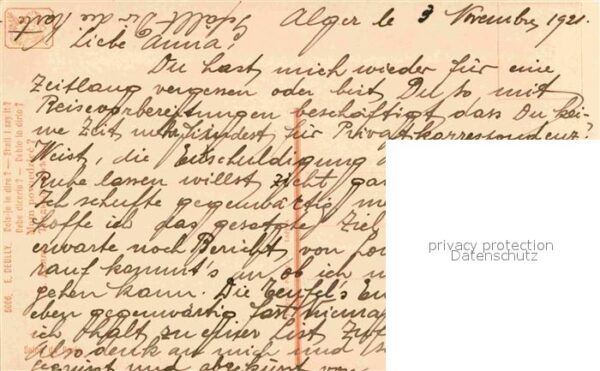 Gefällt Dir die Karte
Alger le 3 Novembre 1921.
Liebe Anna!
Du hast mich wieder für eine
Zeitlang vergessen oder bist Du so mit
Reisevorbereitungen beschäftigt dass Du kei-
ne Zeit mehr findest für Privatkorrespondenz?
Weist, die Entschuldigung
Ruhe lassen willst zieht
Ich schufte gegenwärtig
hoffe ich das gesetzte Ziel
erwarte noch Bericht von
rauf kommt's an ob ich
gehen kann. Die Teufel's
eben gegenwärtig fast Niemand
ich
zu einer List
Also denk an mich und
gegrüsst und von
6006. E. DEULLY. Dois-je le dire? — Shall I say it?
Debo decirlo? — Debbo io dirlo?
privacy protection
Datenschutz